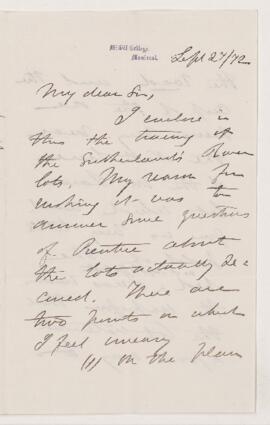 McGill College,
Montreal.
Sept 27/72
My dear Sir,
I enclose in
this the tracing of
the Sutherland's River
lots. My reason for
wishing it was to
answer some questions
of Prentice about
the lots actually se-
cured. There are
two points on which
I feel uneasy
(1) On the plan